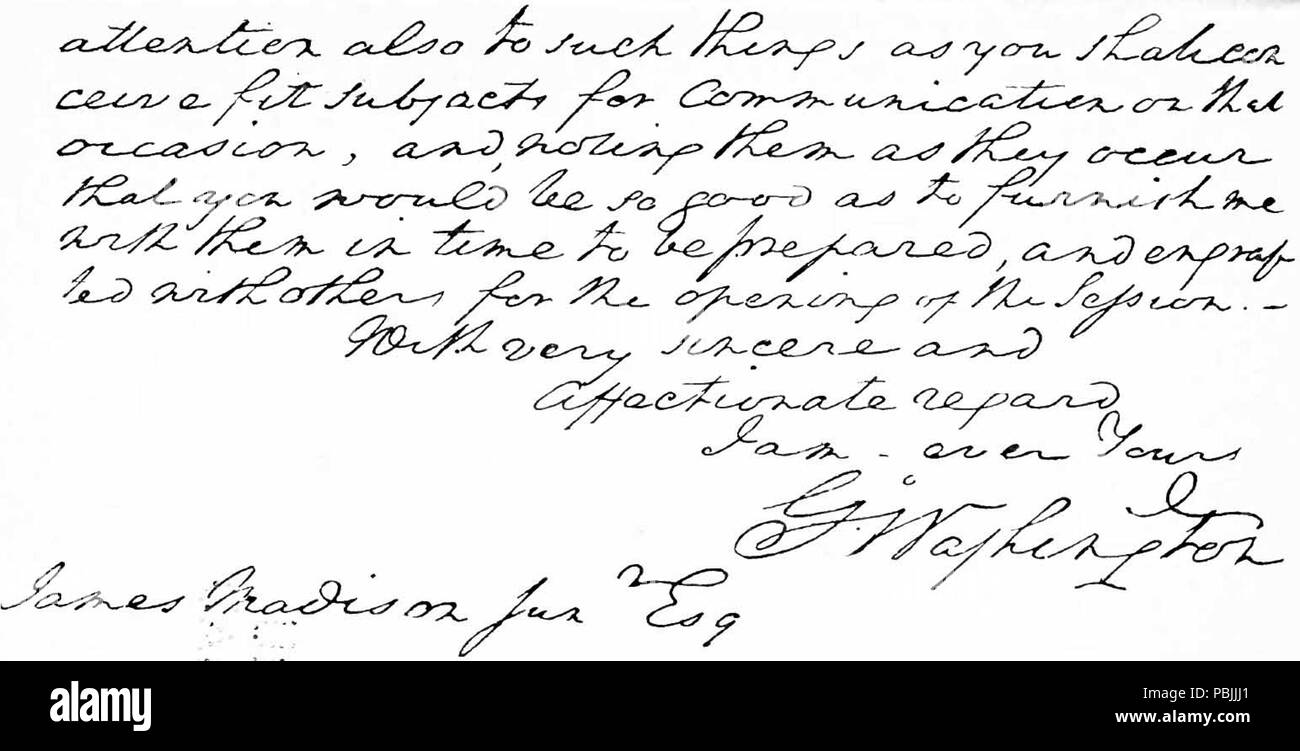 attention also to such things as you shall con
ceive fit subjects for Communication on that
occasion, and, noting them as they occur
that you would be so good as to furnish me
with them in time to be prepared, and engraf
ted with others for the opening of the Session. –
With very sincere and
affectionate regard
I am - ever Yours
Go. Washington
James Madison Junr Esq
alamy
Image ID: PBJJJ1
www.alamy.com